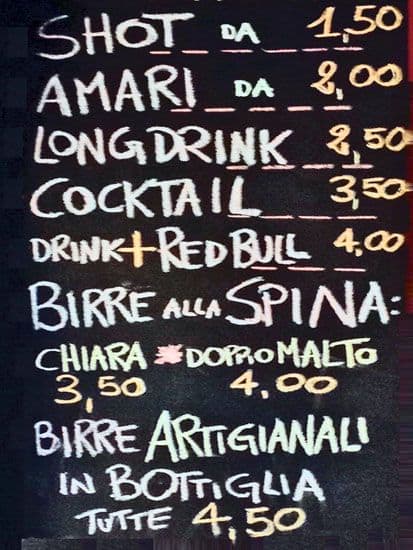 SHOT DA 1,50
AMARI DA 2,00
LONGDRINK 2,50
COCKTAIL 3,50
DRINK+RED BULL 4,00
BIRRE ALLA SPINA:
CHIARA * DOPPIO MALTO
3,50 4,00
BIRRE ARTIGIANALI
IN BOTTIGLIA
TUTTE 4,50